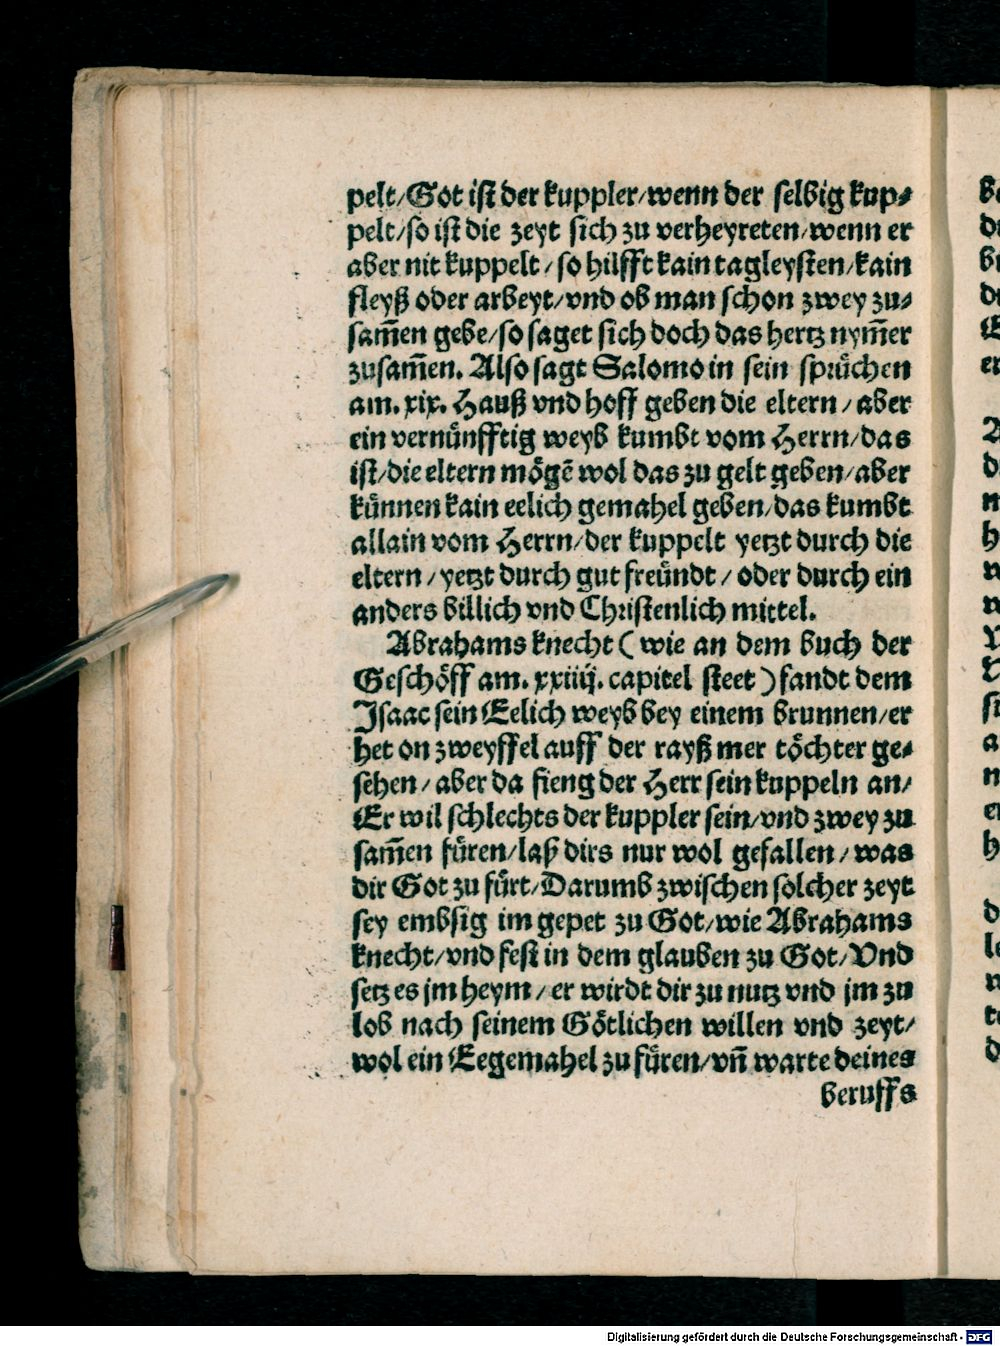 pelt/Got ist der kuppler/wenn der selbig kup⸗
pelt/so ist die zeyt sich zu verheyreten/wenn er
aber nit kuppelt/so hilfft kain tagleysten/kain
fleyß oder arbeyt/vnd ob man schon zwey zu⸗
sam̃en gebe/so saget sich doch das hertz nym̃er
zusam̃en. Also sagt Salomo in sein sprüchen
am. xix. Hauß vnd hoff geben die eltern/aber
ein vernünfftig weyb kumbt vom Herrn/das
ist/die eltern mögẽ wol das zu gelt geben/aber
künnen kain eelich gemahel geben/das kumbt
allain vom Herrn/der kuppelt yetzt durch die
eltern/yetzt durch gut freündt/oder durch ein
anders billich vnd Christenlich mittel.
Abrahams knecht (wie an dem buch der
Geschöff am. xxiiij. capitel steet) fandt dem
Isaac sein Eelich weyb bey einem brunnen/er
het on zweyffel auff der rayß mer töchter ge⸗
sehen/aber da fieng der Herr sein kuppeln an/
Er wil schlechts der kuppler sein/vnd zwey zu
sam̃en füren/laß dirs nur wol gefallen/was
dir Got zu fürt/Darumb zwischen solcher zeyt
sey embsig im gepet zu Got/wie Abrahams
knecht/vnd fest in dem glauben zu Got/Vnd
setz es jm heym/er wirdt dir zu nutz vnd jm zu
lob nach seinem Götlichen willen vnd zeyt/
wol ein Eegemahel zu füren/vñ warte deines
beruffs
Digitalisierung gefördert durch die Deutsche Forschungsgemeinschaft - DFG